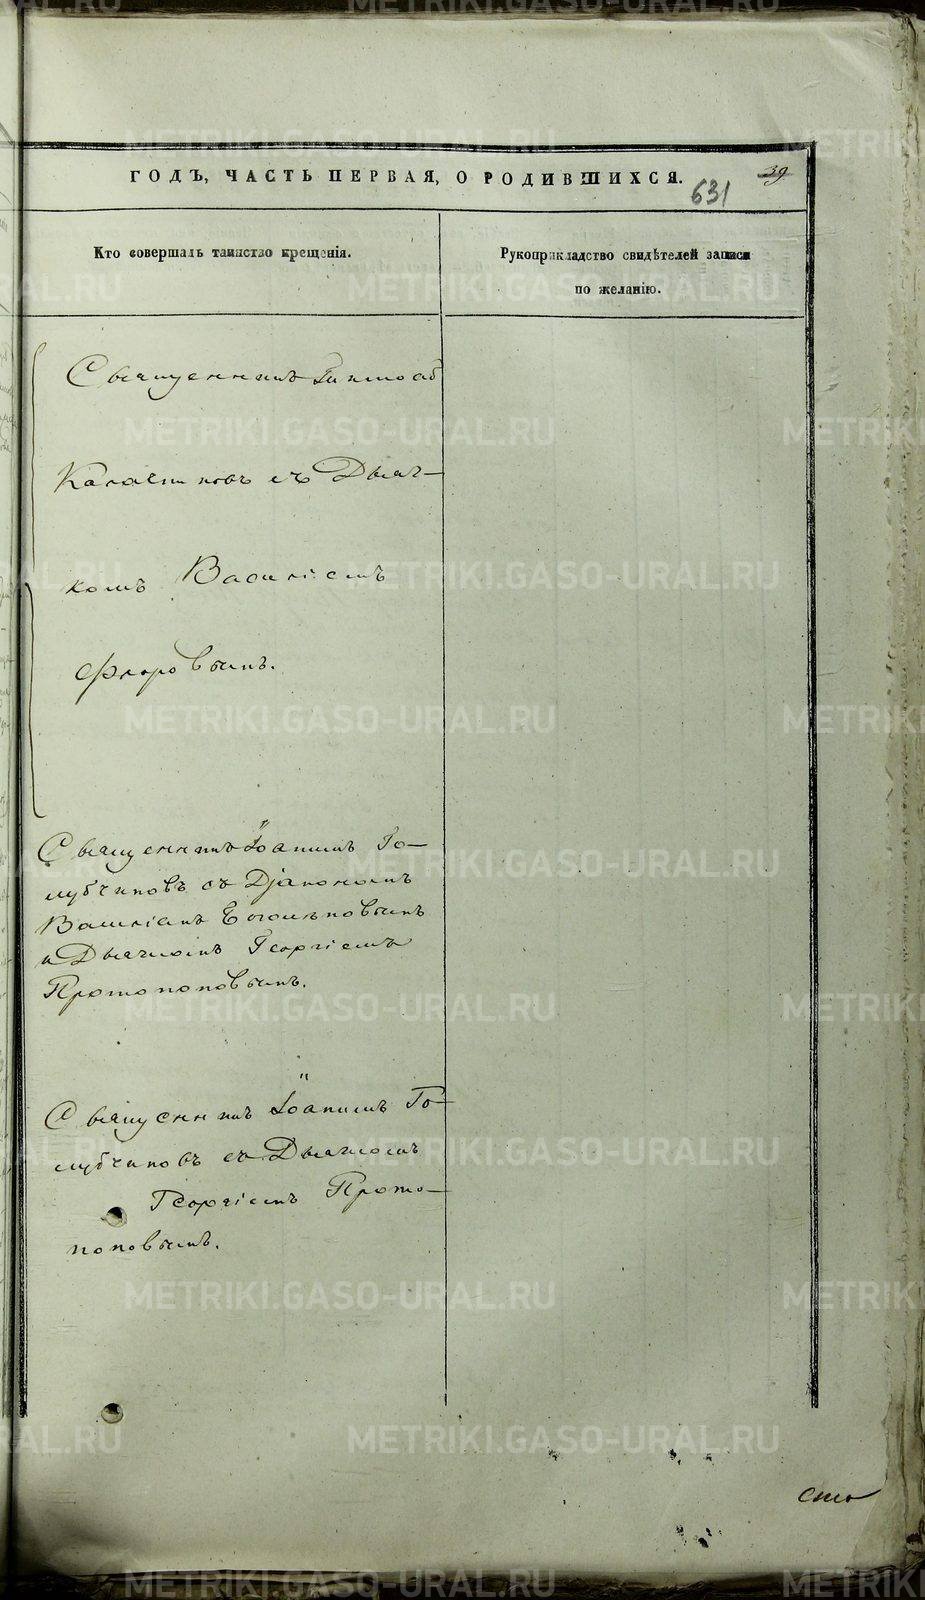 METRIKI.GASO-URAL.RU
ГОДЪ, ЧАСТЬ ПЕРВАЯ, О РОДИВШИХСЯ.
39
631
Кто совершалъ таинство крещенія.
Рукоприкладство свидѣтелей записи
по желанію.
Священникъ
Калачниковъ съ Дьяч-
комъ Василіемъ
Флоровымъ.
Священникъ Іоаннъ Го-
лубчиковъ съ Діакономъ
Василіемъ
и Дьячкомъ Георгіемъ
Протопоповымъ.
Священникъ Іоаннъ Го-
лубчиковъ съ Дьячкомъ
Георгіемъ Прото-
поповымъ.